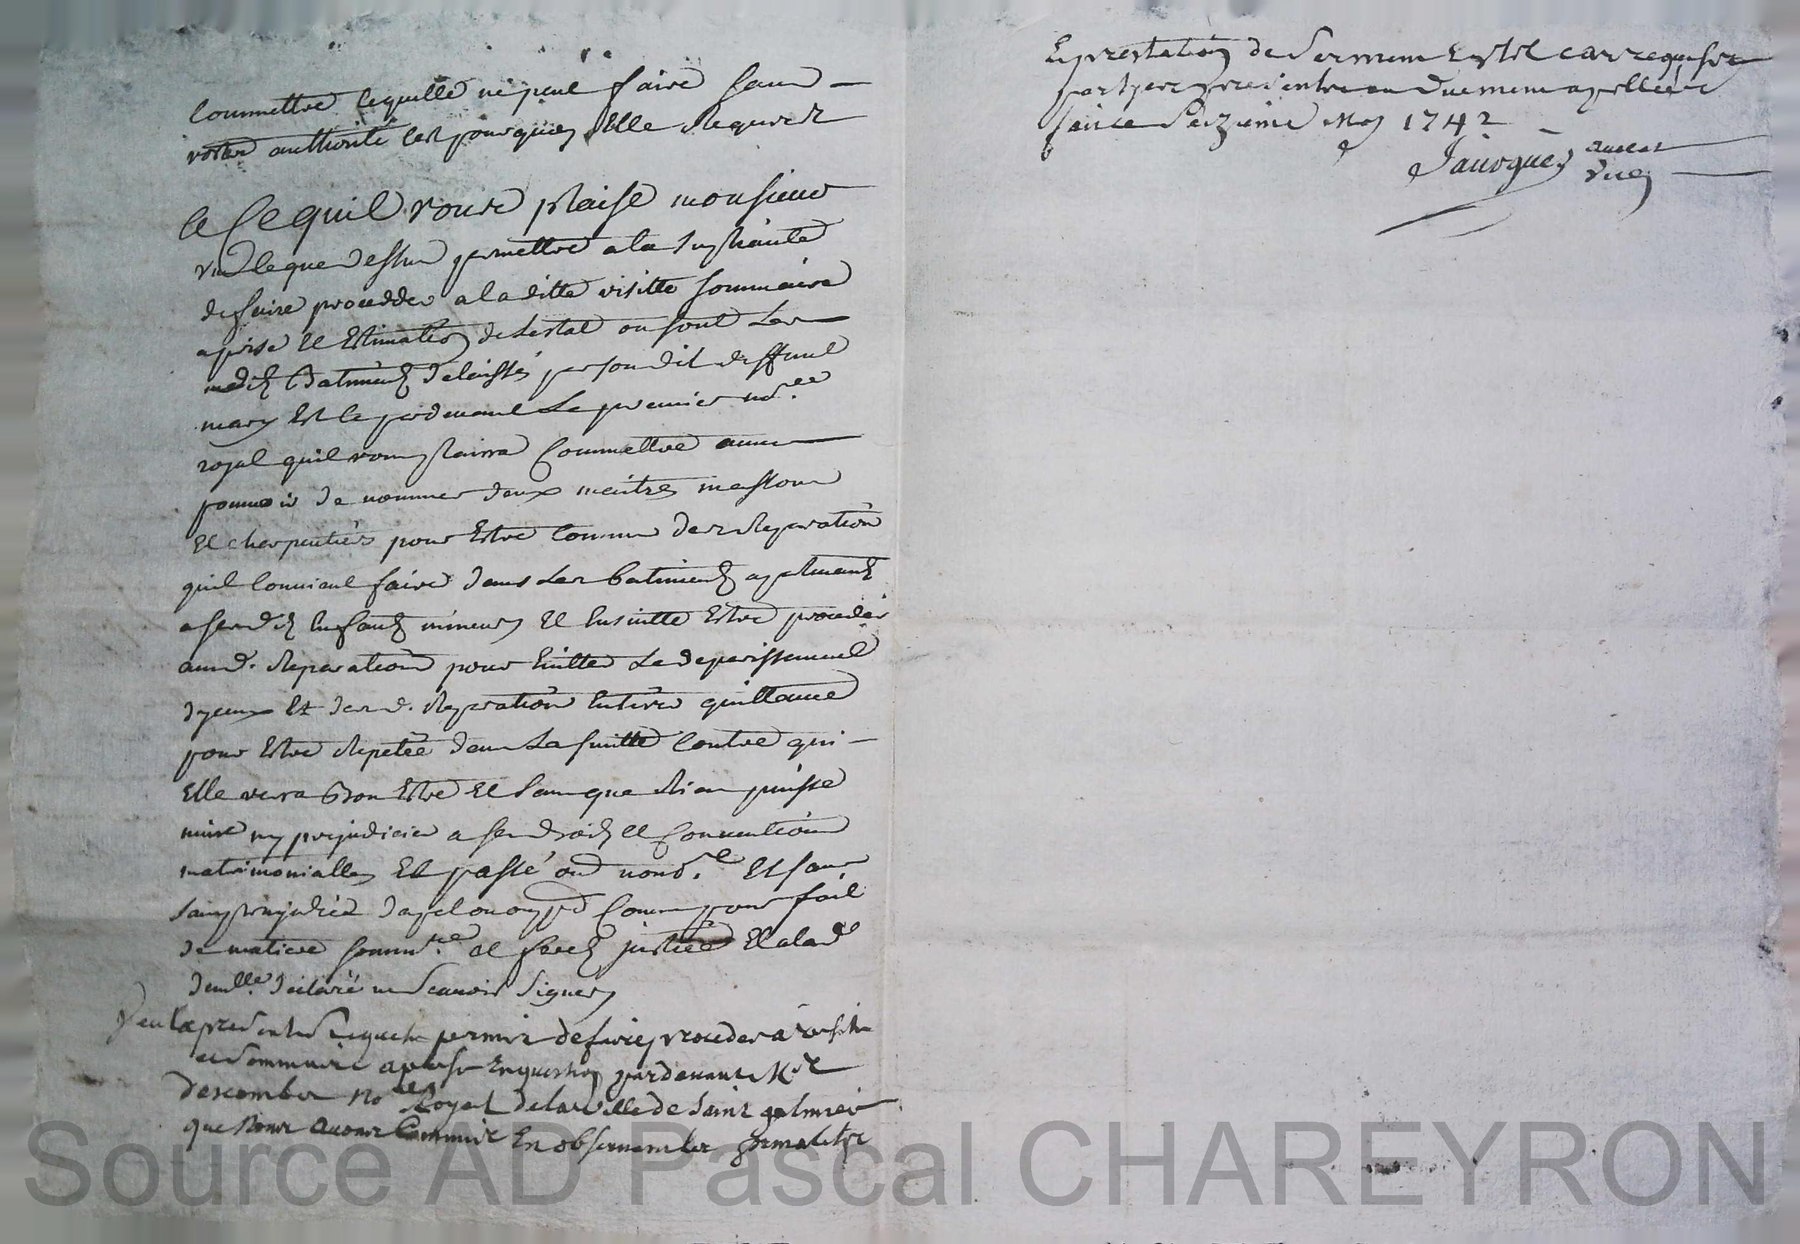 Commettre lequelle ne peut faire sans
votre authorité cest pourquoy Elle Requiert
a Ce quil vous plaise monsieur
vu le que dessus permettre a la supliante
de faire procedder a la ditte visitte sommaire
aprise et Estimation de Lestat ou sont Les
medits Batiments delaissés par son dit deffunt
mary Et ce pardevant Le premier nore
royal quil vous plaira Commettre avec
pouvoir de nommer deux maitres massons
Et charpentiers pour Estre Connu des Reparations
quil Convient faire dans Les batiments apartenants
a sesdits Enfants mineurs Et Ensuitte Estre procedés
auxd. Reparations pour Evitter Le deperissement
dyceux Et desd. Reparations Entirer quittance
pour Estre Repetée dans La suitte Contre qui
Elle verra Bon Estre Et sans que Rien puisse
nuire ny prejudicier a ses droits et Conventions
matrimonialles Et passé Et sans
sans prejudice Comme pour fait
de matiere sommre et ferés justice Et a lade
demlle declaré ne Scavoir Signer
Veu la presente Requete permis de faire proceder a visite
et Sommaire aprise En question pardevant Mre
Descombes Nore Royal de la ville de Saint galmier
que Nous avons Commis En observant les formalites
Source AD Pascal CHAREYRON
Et prestation de Serment Et sil
parties presentes ou duement apellées
faict ce Seizieme May 1742
Javogues